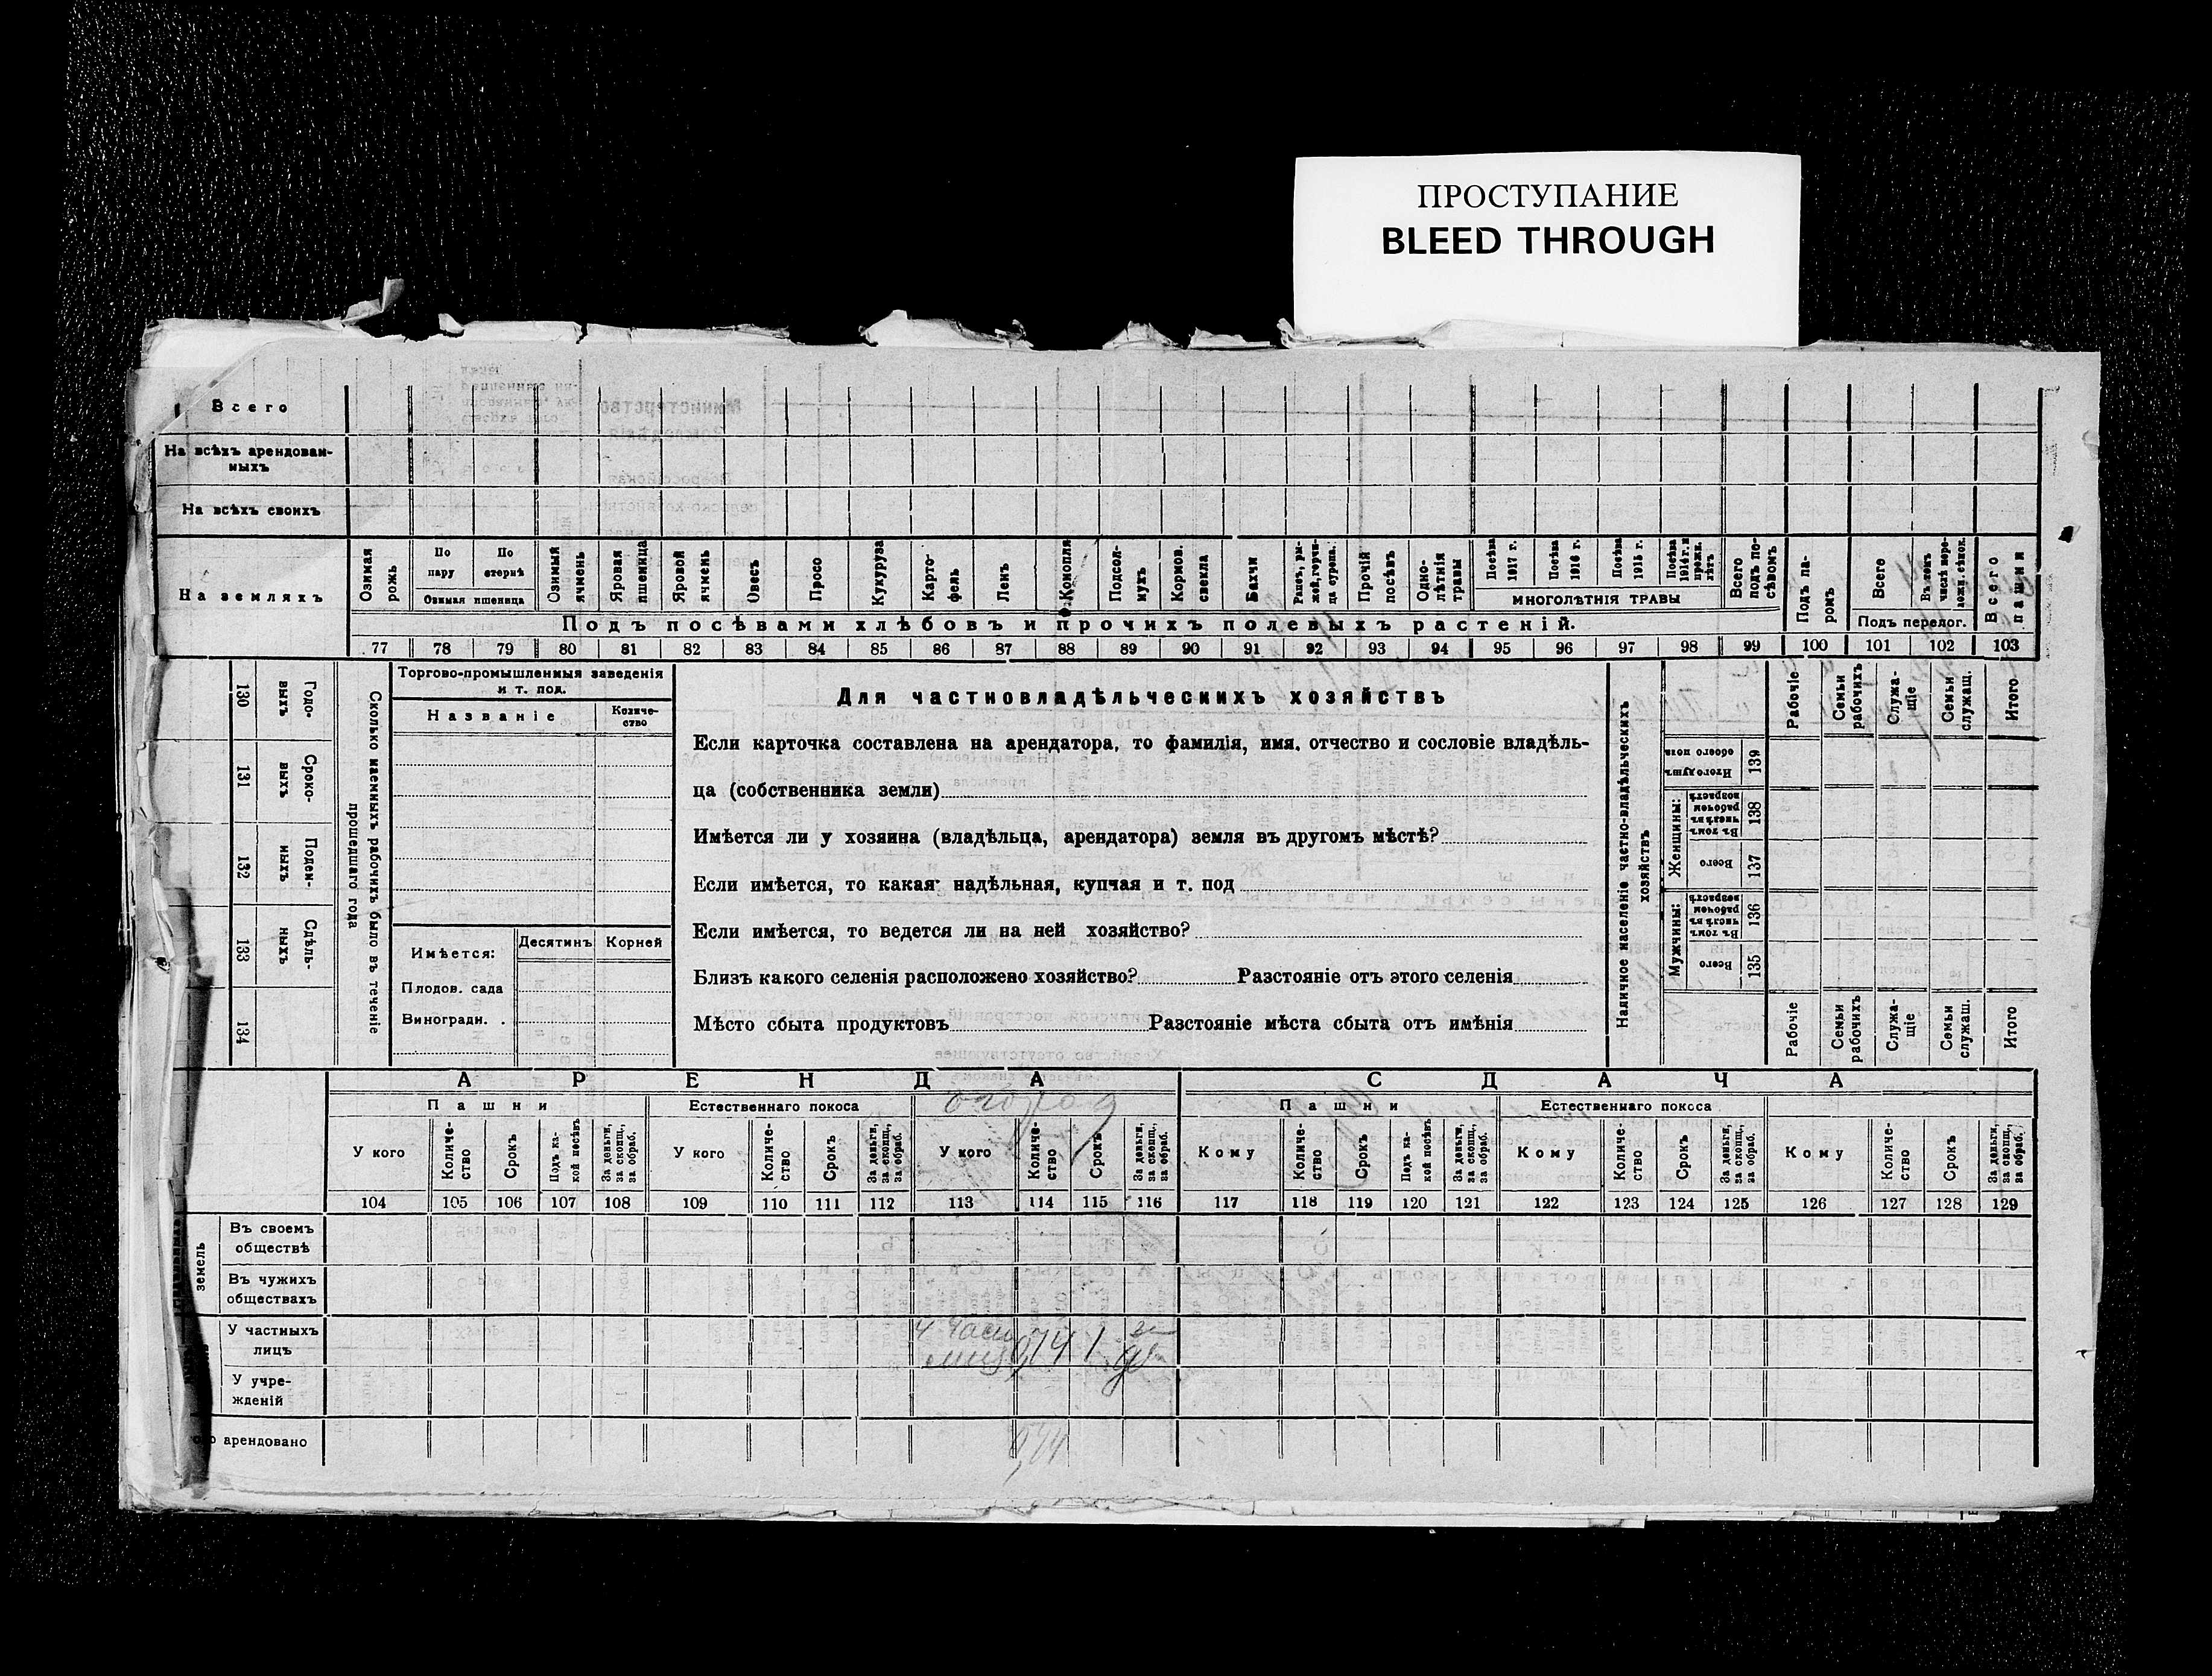 ПРОСТУПАНИЕ
BLEED THROUGH
Всего
На всѣхъ арендован-
ныхъ
На всѣхъ своихъ
На земляхъ
Озимая рожь
По пару
По стернѣ
Озимая пшеница
Озимый ячмень
Яровая пшеница
Яровой ячмень
Овесъ
Просо
Кукуруза
Карто-
фель
Ленъ
Конопля
Подсол-
нухъ
Кормов.
свекла
Бахчи
Рапсъ, ры-
жей, горчи-
ца сурепа.
Прочій посѣвъ
Одно-
лѣтнія травы
Посѣва 1917 г.
Посѣва 1916 г.
Посѣва 1915 г.
Посѣва 1914 г. и прежн. лѣтъ
МНОГОЛѢТНІЯ ТРАВЫ
Всего подъ по-
сѣвомъ
Подъ па-
ромъ
Всего
Въ томъ числѣ пере-
лож. сѣнок.
Подъ перелог.
Всего пашни
Подъ посѣвами хлѣбовъ и прочихъ полевыхъ растеній.
77 78 79 80 81 82 83 84 85 86 87 88 89 90 91 92 93 94 95 96 97 98 99 100 101 102 103
Сколько наемныхъ рабочихъ было въ теченіе
прошедшаго года
Годо-
выхъ
130
Сроко-
выхъ
131
Поден-
ныхъ
132
Сдѣль-
ныхъ
133
134
Торгово-промышленныя заведенія
и т. под.
Названіе
Количе-
ство
Имѣется:
Десятинъ
Корней
Плодов. сада
Виноградн. .
Для частновладѣльческихъ хозяйствъ
Если карточка составлена на арендатора, то фамилія, имя, отчество и сословіе владѣль-
ца (собственника земли)
Имѣется ли у хозяина (владѣльца, арендатора) земля въ другомъ мѣстѣ?
Если имѣется, то какая: надѣльная, купчая и т. под
Если имѣется, то ведется ли на ней хозяйство?
Близъ какого селенія расположено хозяйство? Разстояніе отъ этого селенія
Мѣсто сбыта продуктовъ Разстояніе мѣста сбыта отъ имѣнія
Наличное населеніе частно-владѣльческихъ
хозяйствъ
Рабочіе
Семьи рабочихъ
Служа-
щіе
Семьи служащ.
Итого
Итого душъ обоего пола
139
Женщины:
Въ томъ числѣ въ рабочемъ возрастѣ
138
Всего
137
Мужчины:
Въ томъ числѣ въ рабочемъ возрастѣ
136
Всего
135
Рабочіе
Семьи рабочихъ
Служа-
щіе
Семьи служащ.
Итого
АРЕНДА
СДАЧА
Пашни
Естественнаго покоса
огород
Пашни
Естественнаго покоса
У кого
Количе-
ство
Срокъ
Подъ ка-
кой посѣвъ
За деньги, за скопщ., за обраб.
У кого
Количе-
ство
Срокъ
За деньги, за скопщ., за обраб.
У кого
Количе-
ство
Срокъ
За деньги, за скопщ., за обраб.
Кому
Количе-
ство
Срокъ
Подъ ка-
кой посѣвъ
За деньги, за скопщ., за обраб.
Кому
Количе-
ство
Срокъ
За деньги, за скопщ., за обраб.
Кому
Количе-
ство
Срокъ
За деньги, за скопщ., за обраб.
104 105 106 107 108 109 110 111 112 113 114 115 116 117 118 119 120 121 122 123 124 125 126 127 128 129
земель
Въ своемъ
обществѣ
Въ чужихъ
обществахъ
У частныхъ
лицъ
0,14 1 за
У учре-
жденій
арендовано